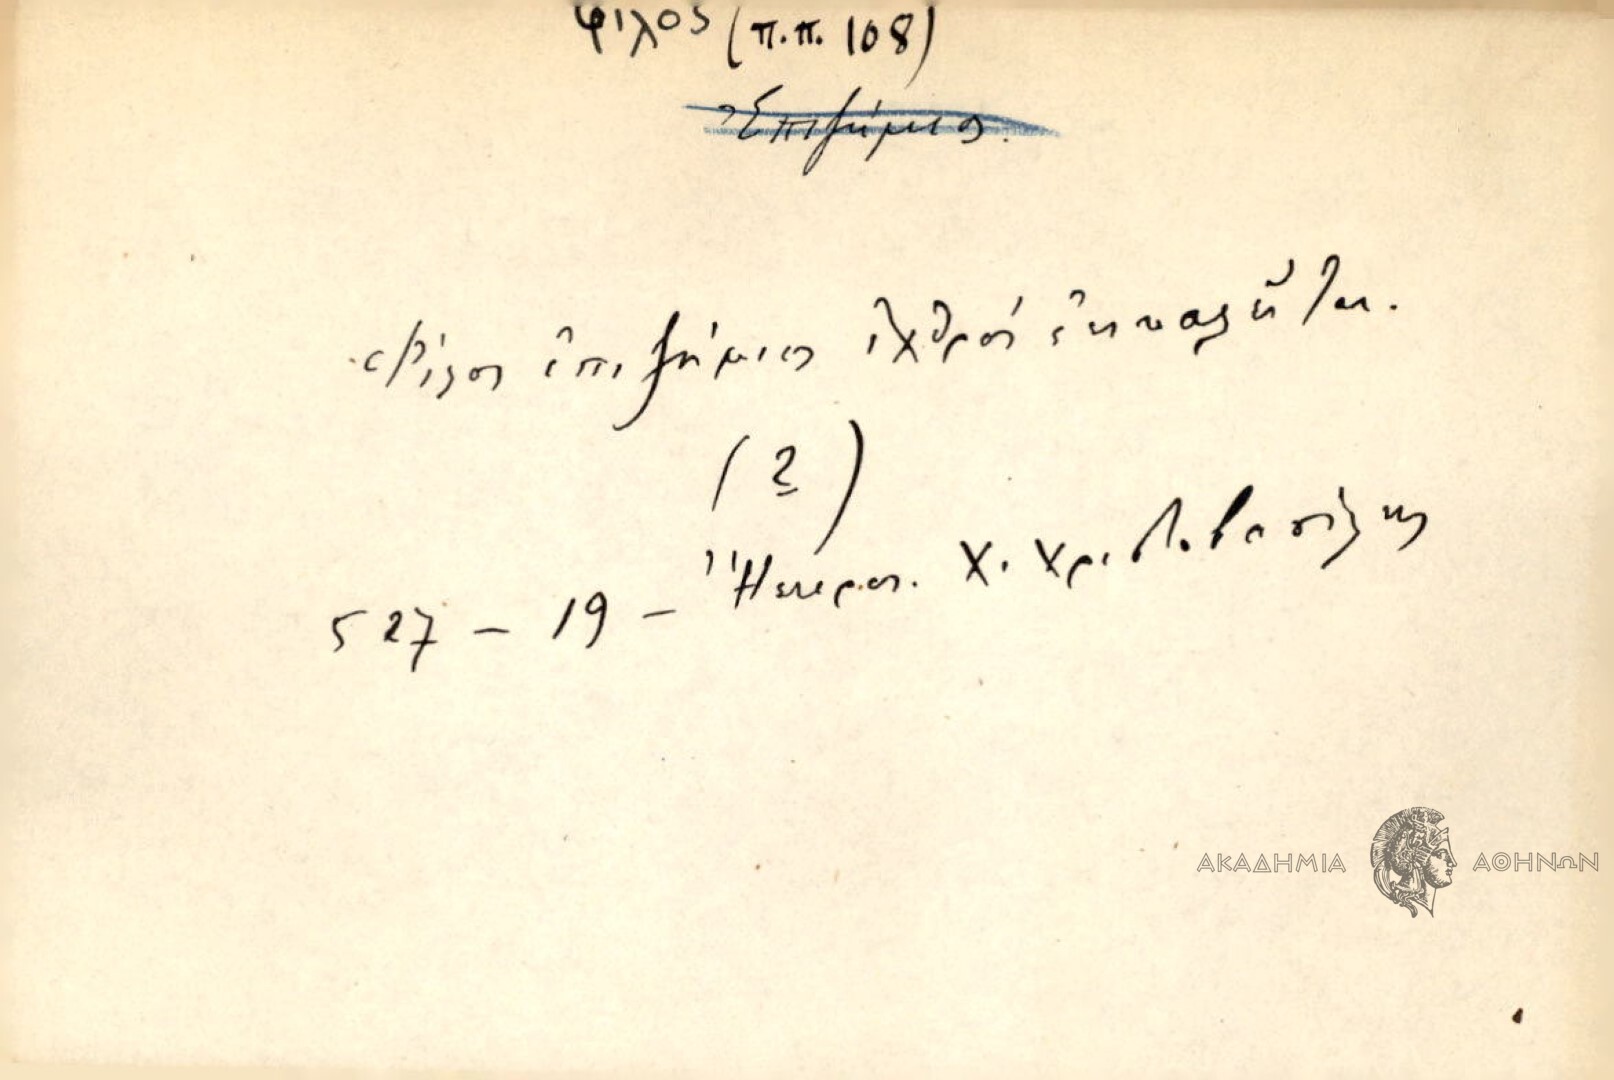 φίλος (π.π. 108)
Ἐπιζήμιος.
Φίλος ἐπιζήμιος ἐχθρός
(2)
527 - 19 - Ἤπειρος. Χ. Χριστοβασίλης
ΑΚΑΔΗΜΙΑ ΑΘΗΝΩΝ